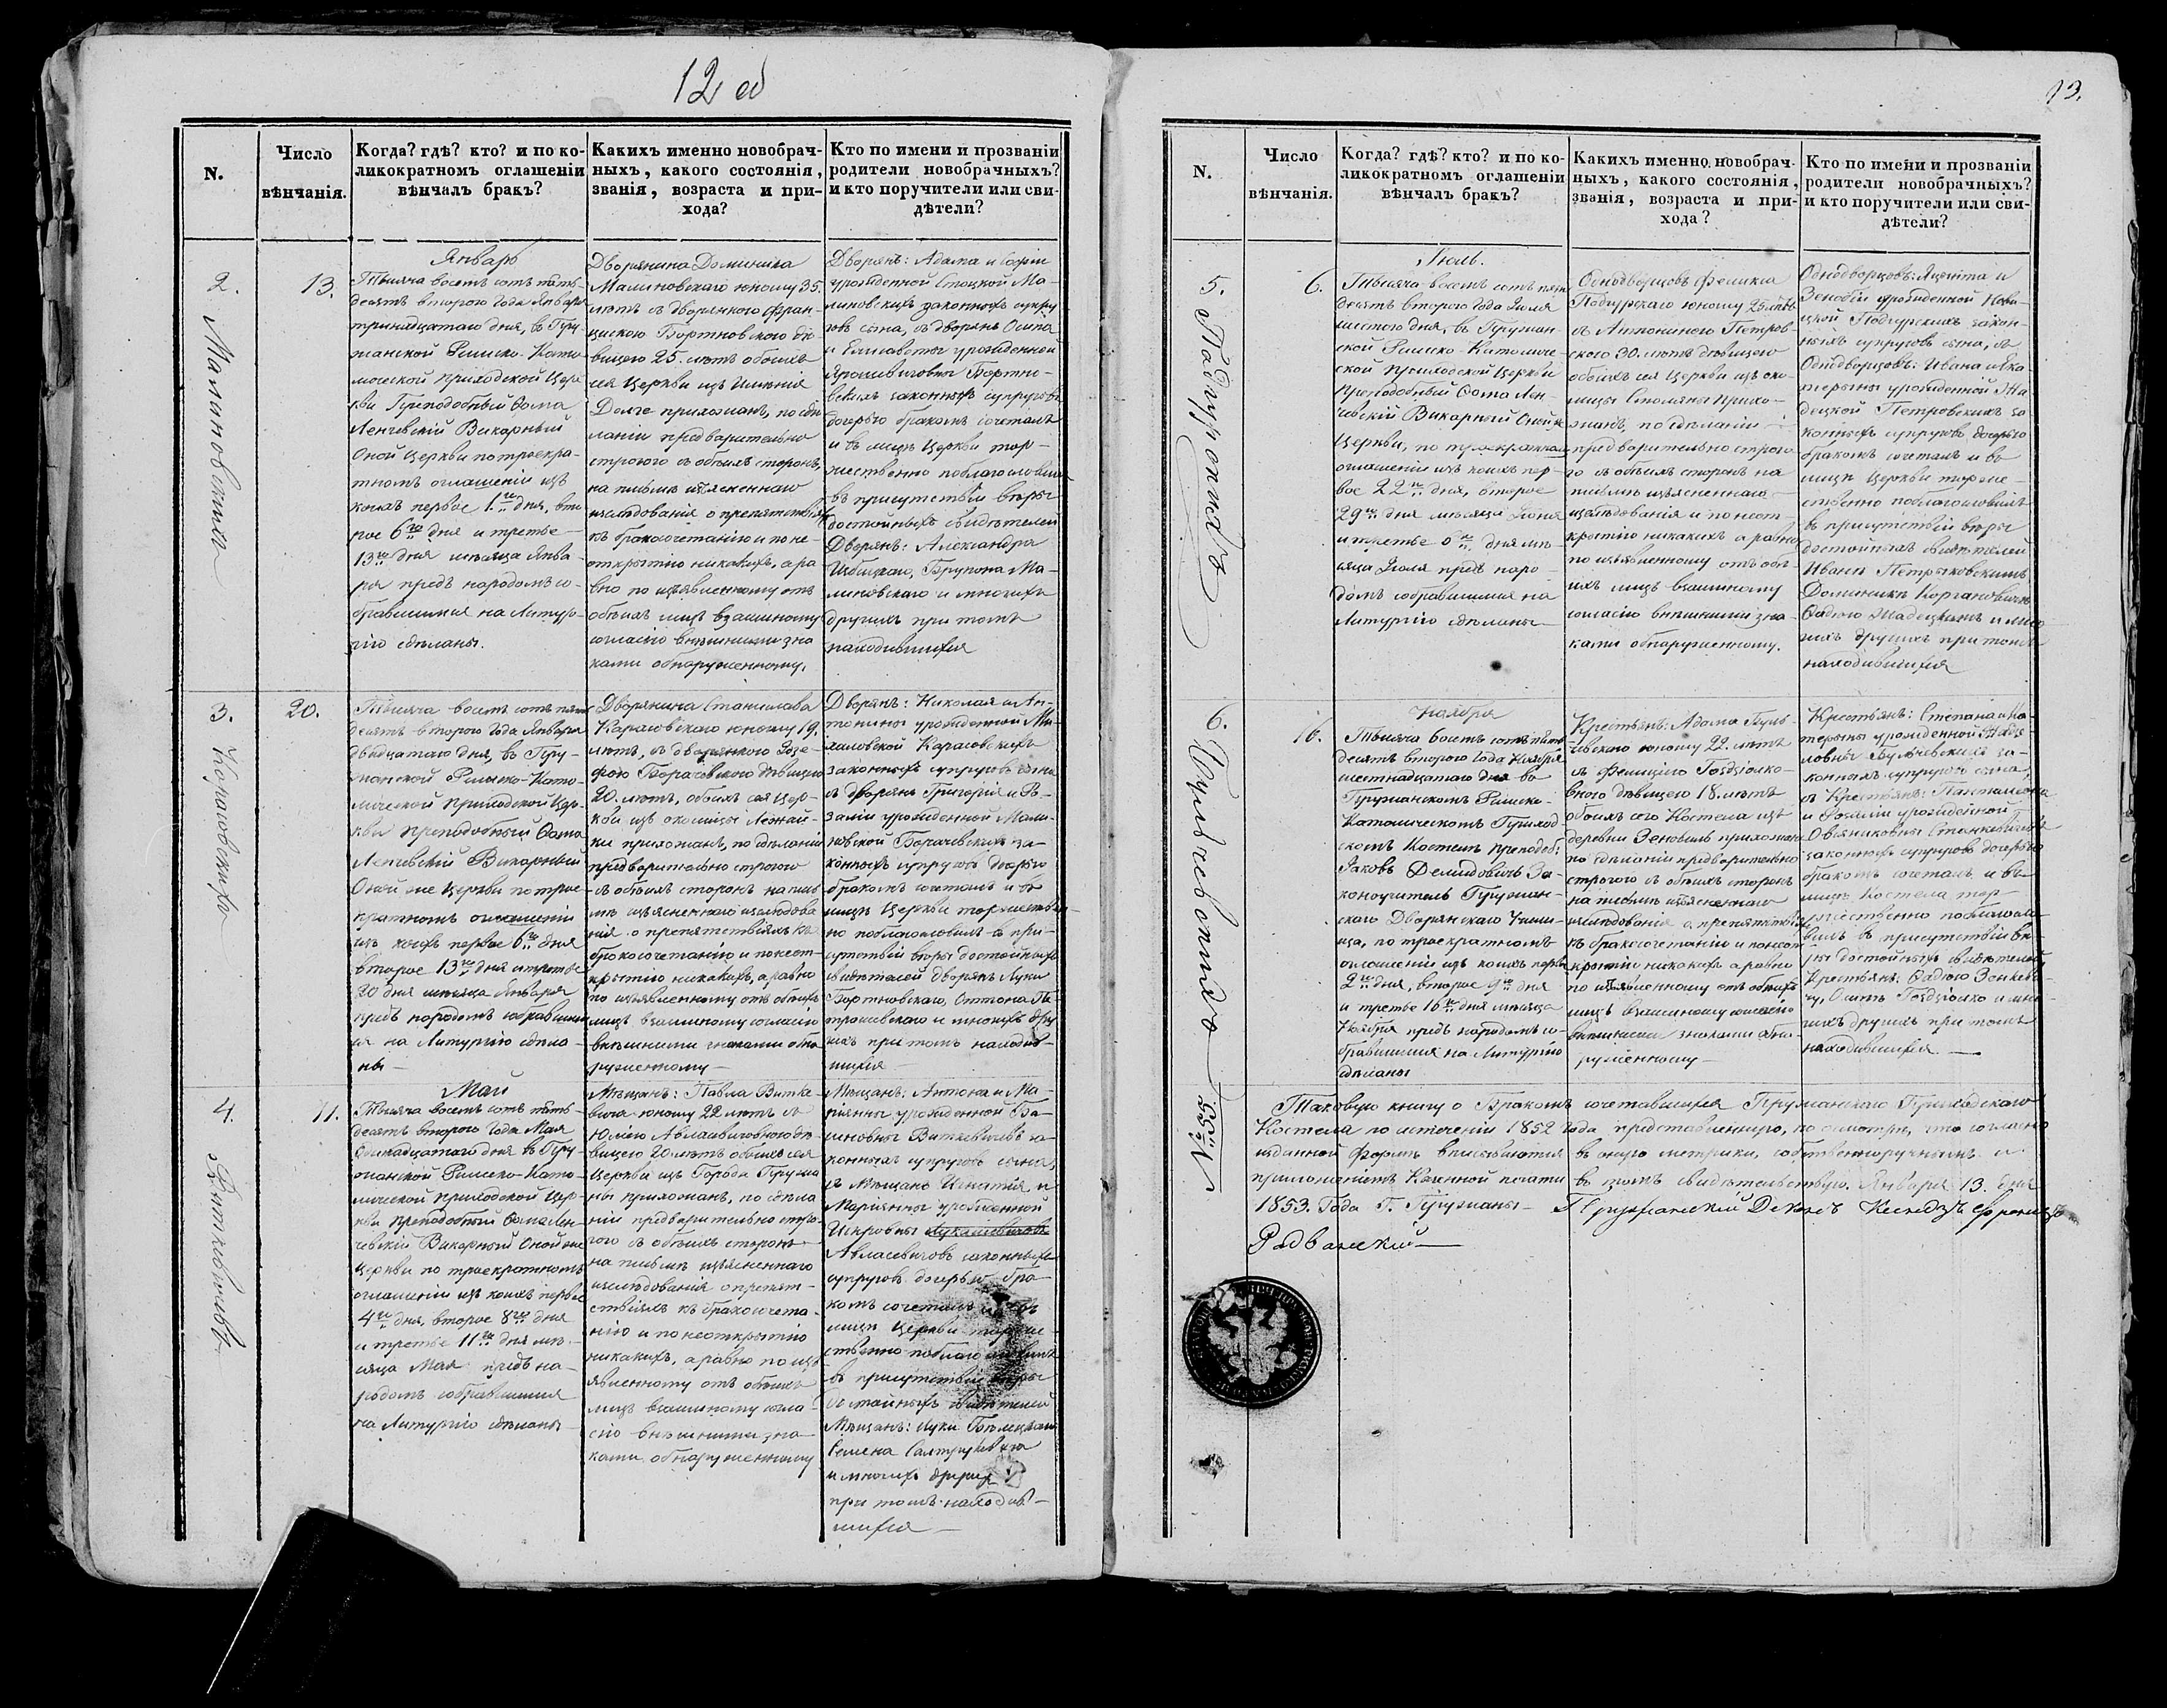 12 об
N.
Число
вѣнчанія.
Когда? гдѣ? кто? и по ко-
ликократномъ оглашеніи
вѣнчалъ бракъ?
Какихъ именно новобрач-
ныхъ, какого состоянія,
званія, возраста и при-
хода?
Кто по имени и прозванію
родители новобрачныхъ?
и кто поручители или сви-
дѣтели?
2.
Малиновскими
13.
Январь
Тысяча восемь сотъ пять-
десятъ втораго года Января
тринадцатаго дня, въ Пру-
жанской Римско-Като-
лической приходской Цер-
кви Преподобный Фома
Ленчевскій Викарный
Оной Церкви по троекра-
тномъ оглашеніи изъ
коихъ первое 1го дня, вто
рое 6го дня и третье
13го дня мѣсяца Янва-
ря предъ народомъ со-
бравшимся на Литур-
гію сдѣланы.
Дворянина Доминика
Малиновскаго юношу 35.
лѣтъ съ дворянкою Фран-
цискою Бортновскою дѣ-
вицею 25. лѣтъ обоихъ
сея Церкви изъ Имѣнія
прихожанъ, по сдѣ
ланіи предварительно
строгого съ обоихъ сторонъ,
на письмѣ изъясненнаго
изслѣдованія о препятствіяхъ
къ бракосочетанію и по не-
открытію никакихъ, а ра
вно по изъявленному отъ
обоихъ лицъ взаимному
согласію внѣшними зна
ками обнаруженному.
Дворянъ: Адама и Софіи
урожденной Ма-
линовскихъ законныхъ супру
говъ сына, съ дворянъ Осипа
и Елисаветы урожденной
Бортно-
вскихъ законныхъ супруговъ
дочерью бракомъ сочеталъ
и въ лицѣ Церкви тор-
жественно поблагословилъ
въ присутствіи вѣры
достойныхъ свидѣтелей
Дворянъ: Александра
Бруннона Ма-
линовскаго и многихъ
другихъ при томъ
находившихся
3.
Карасовскихъ
20.
Тысяча восемь сотъ пять
десятъ втораго года Января
двадцатаго дня, въ Пру-
жанской Римско-Като-
лической приходской Цер-
кви преподобный Фома
Ленчевскій Викарный
Оной же Церкви по трое-
кратномъ оглашеніи
изъ коихъ первое 6го дня
второе 13го дня и третье
20 дня мѣсяца Января
предъ народомъ собравшим
ся на Литургію сдѣла-
ны
Дворянина Станислава
Карасовскаго юношу 19.
лѣтъ, съ дворянкою Юзе-
фою дѣвицею
20. лѣтъ, обоихъ сея Цер-
кви изъ околицы
прихожанъ, по сдѣланіи
предварительно строгого
съ обоихъ сторонъ на пись
мѣ изъясненнаго изслѣдова
нія о препятствіяхъ къ
бракосочетанію и по неот-
крытію никакихъ, а равно
по изъявленному отъ обоихъ
лицъ взаимному согласію
внѣшними знаками обна
руженному
Дворянъ: Николая и Ан-
тонины урожденной
Карасовскихъ
законныхъ супруговъ сына
съ дворянъ Григорія и Ро-
заліи урожденной Мали-
новской за-
конныхъ супруговъ дочерью
бракомъ сочеталъ и въ
лицѣ Церкви торжествен-
но поблагословилъ въ при-
сутствіи вѣры достойныхъ
свидѣтелей дворянъ Луки
Бортновскаго, Антона
и многихъ дру
гихъ при томъ находив-
шихся
4.
Виткевичевъ
11.
Май
Тысяча восемь сотъ пять-
десятъ втораго года Мая
одинадцатаго дня въ Пру-
жанской Римско-Като-
лической приходской Цер-
кви преподобный Фома Лен-
чевскій Викарный Оной же
Церкви по троекратномъ
оглашеніи изъ коихъ первое
4го дня, второе 8го дня
и третье 11го дня мѣ-
сяца Мая предъ на-
родомъ собравшимся
на Литургію сдѣланы
Мѣщанъ: Павла Витке-
вича юношу 22 лѣтъ съ
Юліею дѣ-
вицею 20 лѣтъ обоихъ сея
Церкви изъ Города Пружа
ны прихожанъ, по сдѣла
ніи предварительно стро-
гого съ обоихъ сторонъ
на письмѣ изъясненнаго
изслѣдованія о препят-
ствіяхъ къ бракосочета-
нію и по неоткрытію
никакихъ, а равно по изъ
явленному отъ обоихъ
лицъ взаимному согла-
сію внѣшними зна-
ками обнаруженному
Мѣщанъ: Антона и Ма-
ріянны урожденной
Виткевичевъ за-
конныхъ супруговъ сына,
съ Мѣщанъ Игнатія и
Маріянны урожденной
законныхъ
супруговъ дочерью бра-
комъ сочеталъ и въ
лицѣ Церкви торже-
ственно поблагословилъ
въ присутствіи вѣры
достойныхъ свидѣтелей
Мѣщанъ: Луки
Семена
и многихъ другихъ
при томъ находив-
шихся
13.
N.
Число
вѣнчанія.
Когда? гдѣ? кто? и по ко-
ликократномъ оглашеніи
вѣнчалъ бракъ?
Какихъ именно новобрач-
ныхъ, какого состоянія,
званія, возраста и при-
хода?
Кто по имени и прозванію
родители новобрачныхъ?
и кто поручители или сви-
дѣтели?
5.
6.
Іюль.
Тысяча восемь сотъ пять
десятъ втораго года Іюля
шестого дня, въ Пружан-
ской Римско-Католиче-
ской приходской Церкви
преподобный Фома Лен-
чевскій Викарный Оной же
Церкви, по троекратномъ
оглашеніи изъ коихъ пер-
вое 22го дня, второе
29го дня мѣсяца Іюня
и третье 6го дня мѣ-
сяца Іюля предъ наро-
домъ собравшимся на
Литургію сдѣланы
Однодворцовъ Феликса
юношу 25 лѣтъ
съ Антониною Петров-
скою 30. лѣтъ дѣвицею
обоихъ сея Церкви изъ око-
лицы прихо-
жанъ, по сдѣланіи
предварительно строго-
го съ обоихъ сторонъ на
письмѣ изъясненнаго
изслѣдованія и по неот-
крытію никакихъ а равно
по изъявленному отъ обо-
ихъ лицъ взаимному
согласію внѣшними зна-
ками обнаруженному.
Однодворцовъ: Яцента и
Зенобіи урожденной
закон-
ныхъ супруговъ сына, съ
Однодворцовъ: Ивана и Ека-
терины урожденной
Петровскихъ за-
конныхъ супруговъ дочерью
бракомъ сочеталъ и въ
лицѣ Церкви торже-
ственно поблагословилъ
въ присутствіи вѣры
достойныхъ свидѣтелей
Ивана
Доминика
и мно
гихъ другихъ при томъ
находившихся
6.
16.
Ноября
Тысяча восемь сотъ пять
десятъ втораго года Ноября
шестнадцатаго дня во
Пружанскомъ Римско-
Католическомъ Приход
скомъ Костелѣ преподоб:
Яковъ Демидовичъ За-
коноучитель Пружан-
скаго Дворянскаго Учили-
ща, по троекратномъ
оглашеніи изъ коихъ первое
2го дня, второе 9го дня
и третье 16го дня мѣсяца
Ноября предъ народомъ со-
бравшимся на Литургію
сдѣланы
Крестьянъ: Адама
юношу 22. лѣтъ
съ Фелиціею
дѣвицею 18. лѣтъ
обоихъ сего Костела изъ
деревни прихожанъ
по сдѣланіи предварительно
строгого съ обоихъ сторонъ
на письмѣ изъясненнаго
изслѣдованія о препятствіяхъ
къ бракосочетанію и по неот
крытію никакихъ а равно
по изъявленному отъ обоихъ
лицъ взаимному согласію
внѣшними знаками обна-
руженному
Крестьянъ: Степана и Ка-
терины урожденной
за-
конныхъ супруговъ сына,
съ Крестьянъ: Пантелеймона
и Розаліи урожденной
законныхъ супруговъ дочерью
бракомъ сочеталъ и въ
лицѣ Костела тор-
жественно поблагосло-
вилъ въ присутствіи вѣ-
ры достойныхъ свидѣтелей
Крестьянъ:
Осипа и мно-
гихъ другихъ при томъ
находившихся
Таковую книгу о Бракомъ сочетавшихся Пружанскаго Приходскаго
Костела по истеченіи 1852 года представленную, по осмотрѣ, что согласно
изданной формѣ вписываются въ оную метрики, собственноручнымъ и
приложеніемъ Казенной печати въ томъ свидѣтельствую. Января 13. дня
1853. Года Г. Пружаны Пружанскій Деканъ Ксендзъ
Радванскій